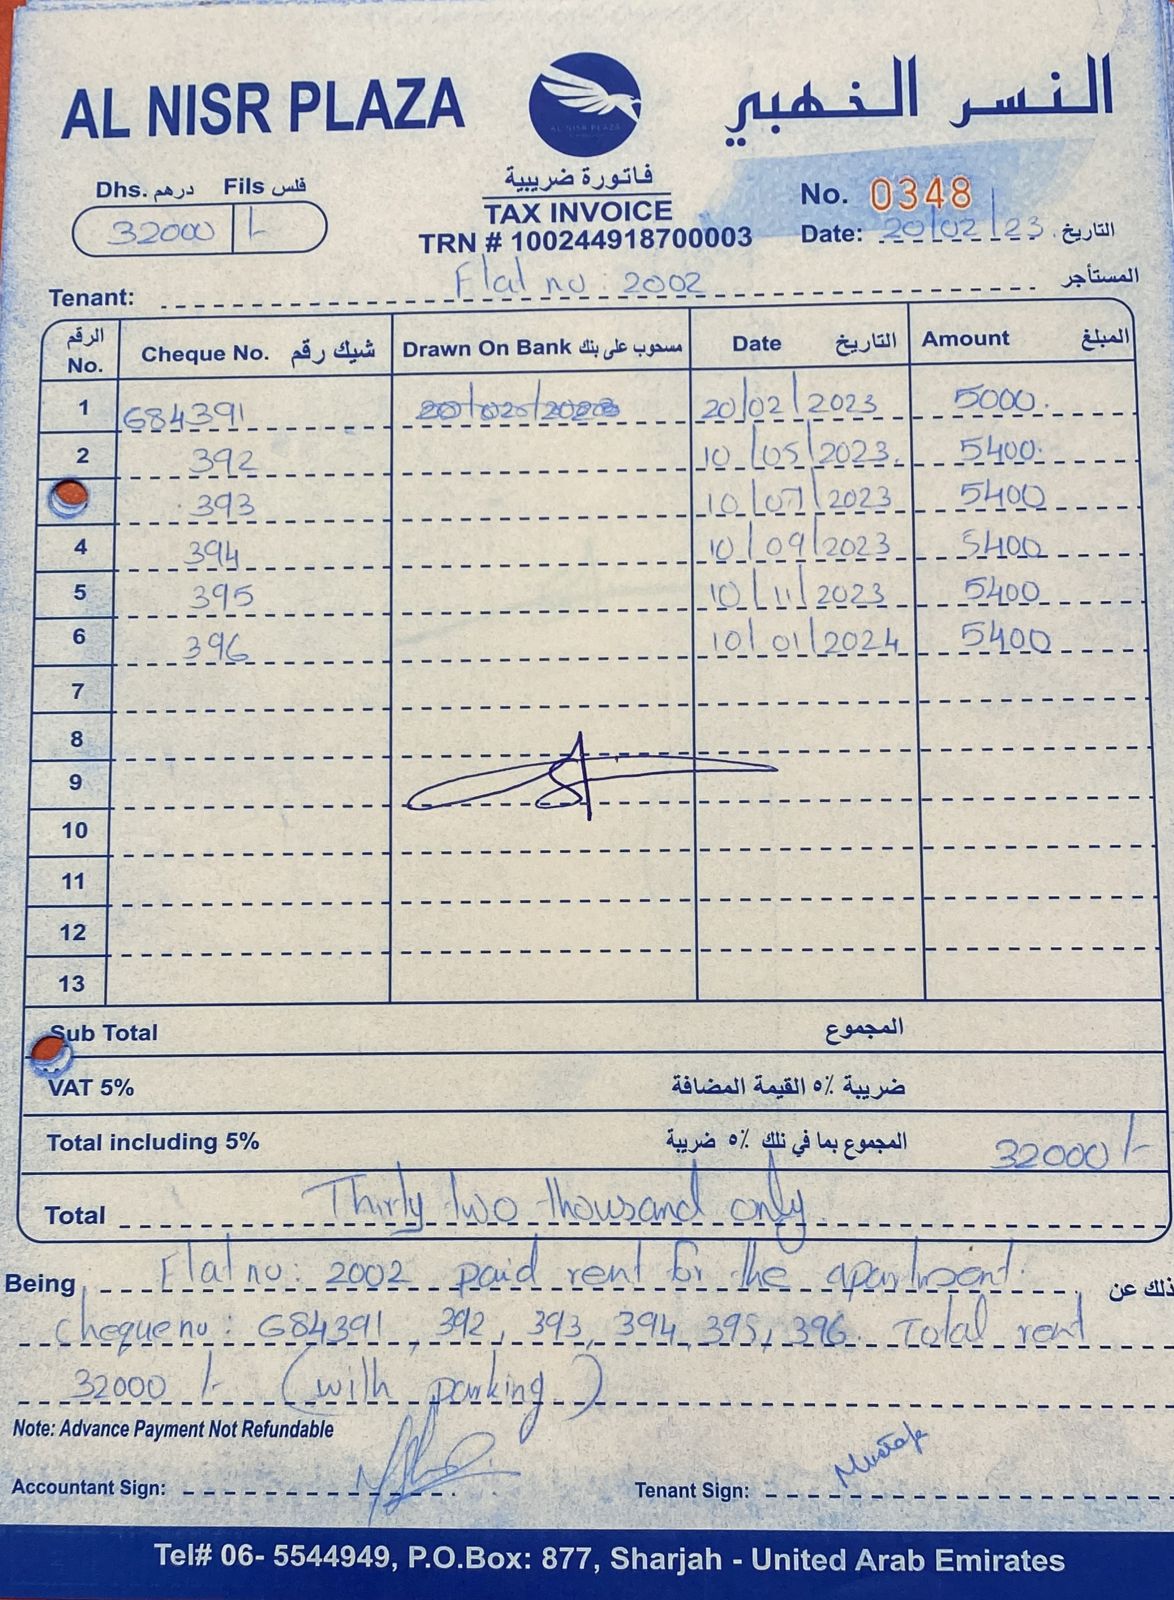 AL NISR PLAZA النسر الخهبي
AL NISR PLAZA
Dhs. درهم Fils فلس
32000 /-
فاتورة ضريبية
TAX INVOICE
TRN # 100244918700003
No. 0348
Date: 20/02/23 التاريخ
Tenant: Flat no: 2002 المستأجر
الرقم No. Cheque No. شيك رقم Drawn On Bank مسحوب على بنك Date التاريخ Amount المبلغ
1 684391 20/02/2023 20/02/2023 5000.
2 392 10/05/2023. 5400.
393 10/07/2023 5400
4 394 10/09/2023 5400
5 395 10/11/2023 5400
6 396 10/01/2024 5400
7
8
9
10
11
12
13
Sub Total المجموع
VAT 5% ضريبة ٥٪ القيمة المضافة
Total including 5% المجموع بما في نلك ٥٪ ضريبة 32000/-
Total Thirty two thousand only
Being Flat no: 2002 paid rent for the apartment. ذلك عن
cheque no: 684391, 392, 393, 394, 395, 396. Total rent
32000 /- (with parking)
Note: Advance Payment Not Refundable
Accountant Sign: Tenant Sign: Mustafa
Tel# 06- 5544949, P.O.Box: 877, Sharjah - United Arab Emirates